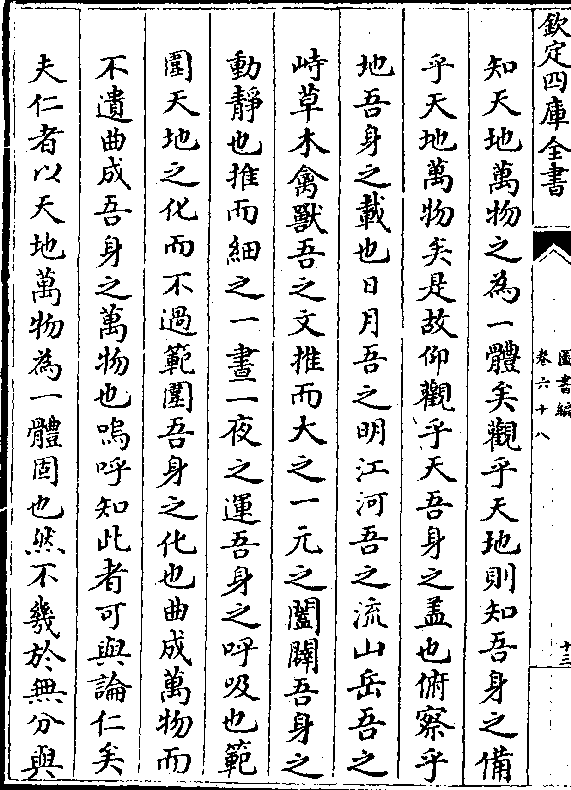 欽定四庫全書
圖書編
卷六十八
十三
知天地萬物之為一體矣觀乎天地則知吾身之備
乎天地萬物矣是故仰觀乎天吾身之蓋也俯察乎
地吾身之載也日月吾之明江河吾之流山岳吾之
峙草木禽獸吾之文推而大之一元之闔闢吾身之
動靜也推而細之一晝一夜之運吾身之呼吸也範
圍天地之化而不過範圍吾身之化也曲成萬物而
不遺曲成吾身之萬物也嗚呼知此者可與論仁矣
夫仁者以天地萬物為一體固也然不幾於無分與